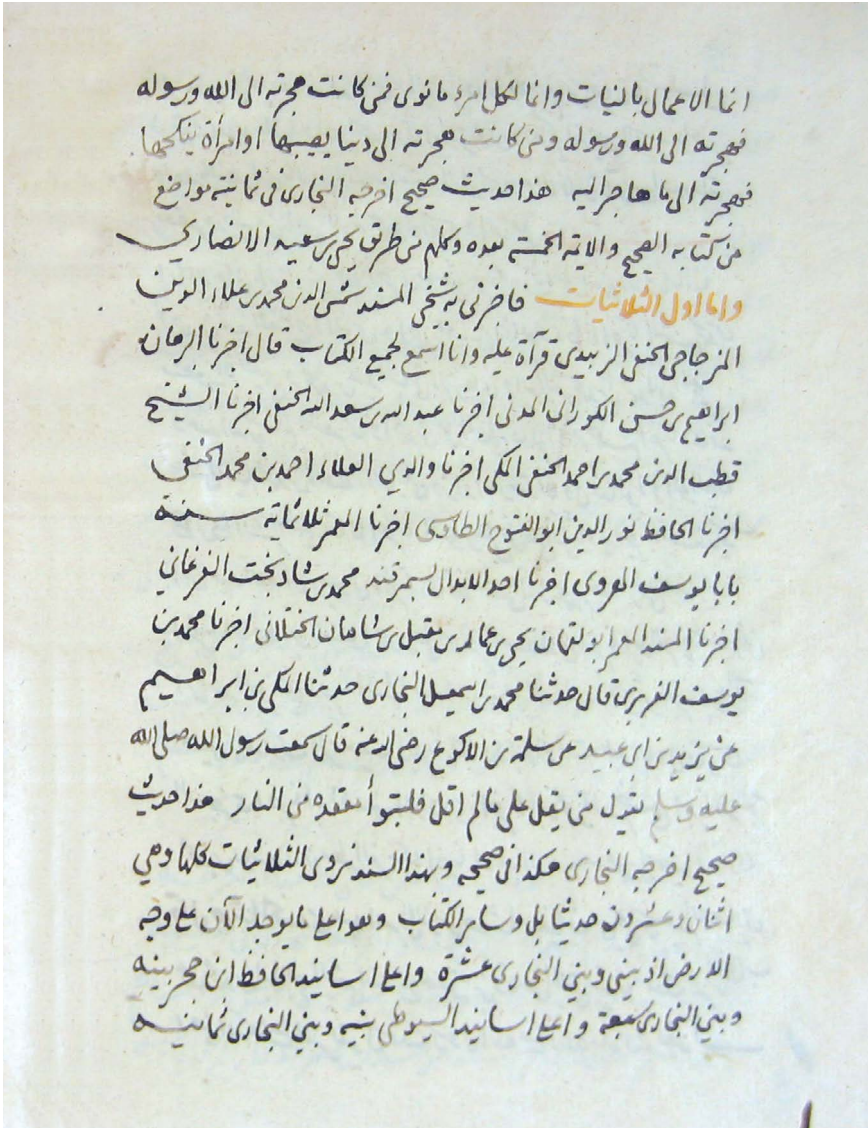 انما الاعمال بالنيات وانما لكل امرء ما نوى فمن كانت هجرته الى الله ورسوله
فهجرته الى الله ورسوله ومن كانت هجرته الى دينا يصيبها او امرأة ينكحها
فهجرته الى ما هاجر اليه هذا حديث صحيح اخرجه البخارى فى ثمانية مواضع
من كتابه الصحيح والائمة الخمسة بعده وكلهم من طريق يحيى بن سعيد الانصاري
واما اول الثلاثيات فاخبرنى به شيخى المسند شمس الدين محمد بن علاء الدين
المزجاجى الحنفى الزبيدى قرآة عليه وانا اسمع لجميع الكتاب قال اخبرنا البرهان
ابراهيم بن حسن الكورانى المدنى اخبرنا عبد الله بن سعد الله الحنفى اخبرنا الشيخ
قطب الدين محمد بن احمد الحنفى المكى اخبرنا والدي العلاء احمد بن محمد الحنفى
اخبرنا الحافظ نور الدين ابو الفتوح الطاوسى اخبرنا المعمر ثلاثمائة سنة
بابا يوسف الهروى اخبرنا احد الابدال بسمرقند محمد بن شاد بخت الفرغاني
اخبرنا المسند المعمر ابو لقمان يحيى بن عمار بن مقبل بن شاهان الختلانى اخبرنا محمد بن
يوسف الفربرى قال حدثنا محمد بن اسمعيل البخارى حدثنا المكى بن ابراهيم
عن يزيد بن ابى عبيد عن سلمة بن الاكوع رضى الله عنه قال سمعت رسول الله صلى الله
عليه وسلم يقول من يقل على مالم اقل فليتبوأ مقعده من النار هذا حديث
صحيح اخرجه البخارى هكذا فى صحيحه وبهذا السند نروى الثلاثيات كلها وهي
اثنان وعشرون حديثا بل وساير الكتاب وهو اعلى ما يوجد الآن على وجه
الارض اذ بينى وبين البخارى عشرة واعلا اسانيد الحافظ ابن حجر بينه
وبين البخارى سبعة واعلا اسانيد السيوطى بينه وبين البخارى ثمانية